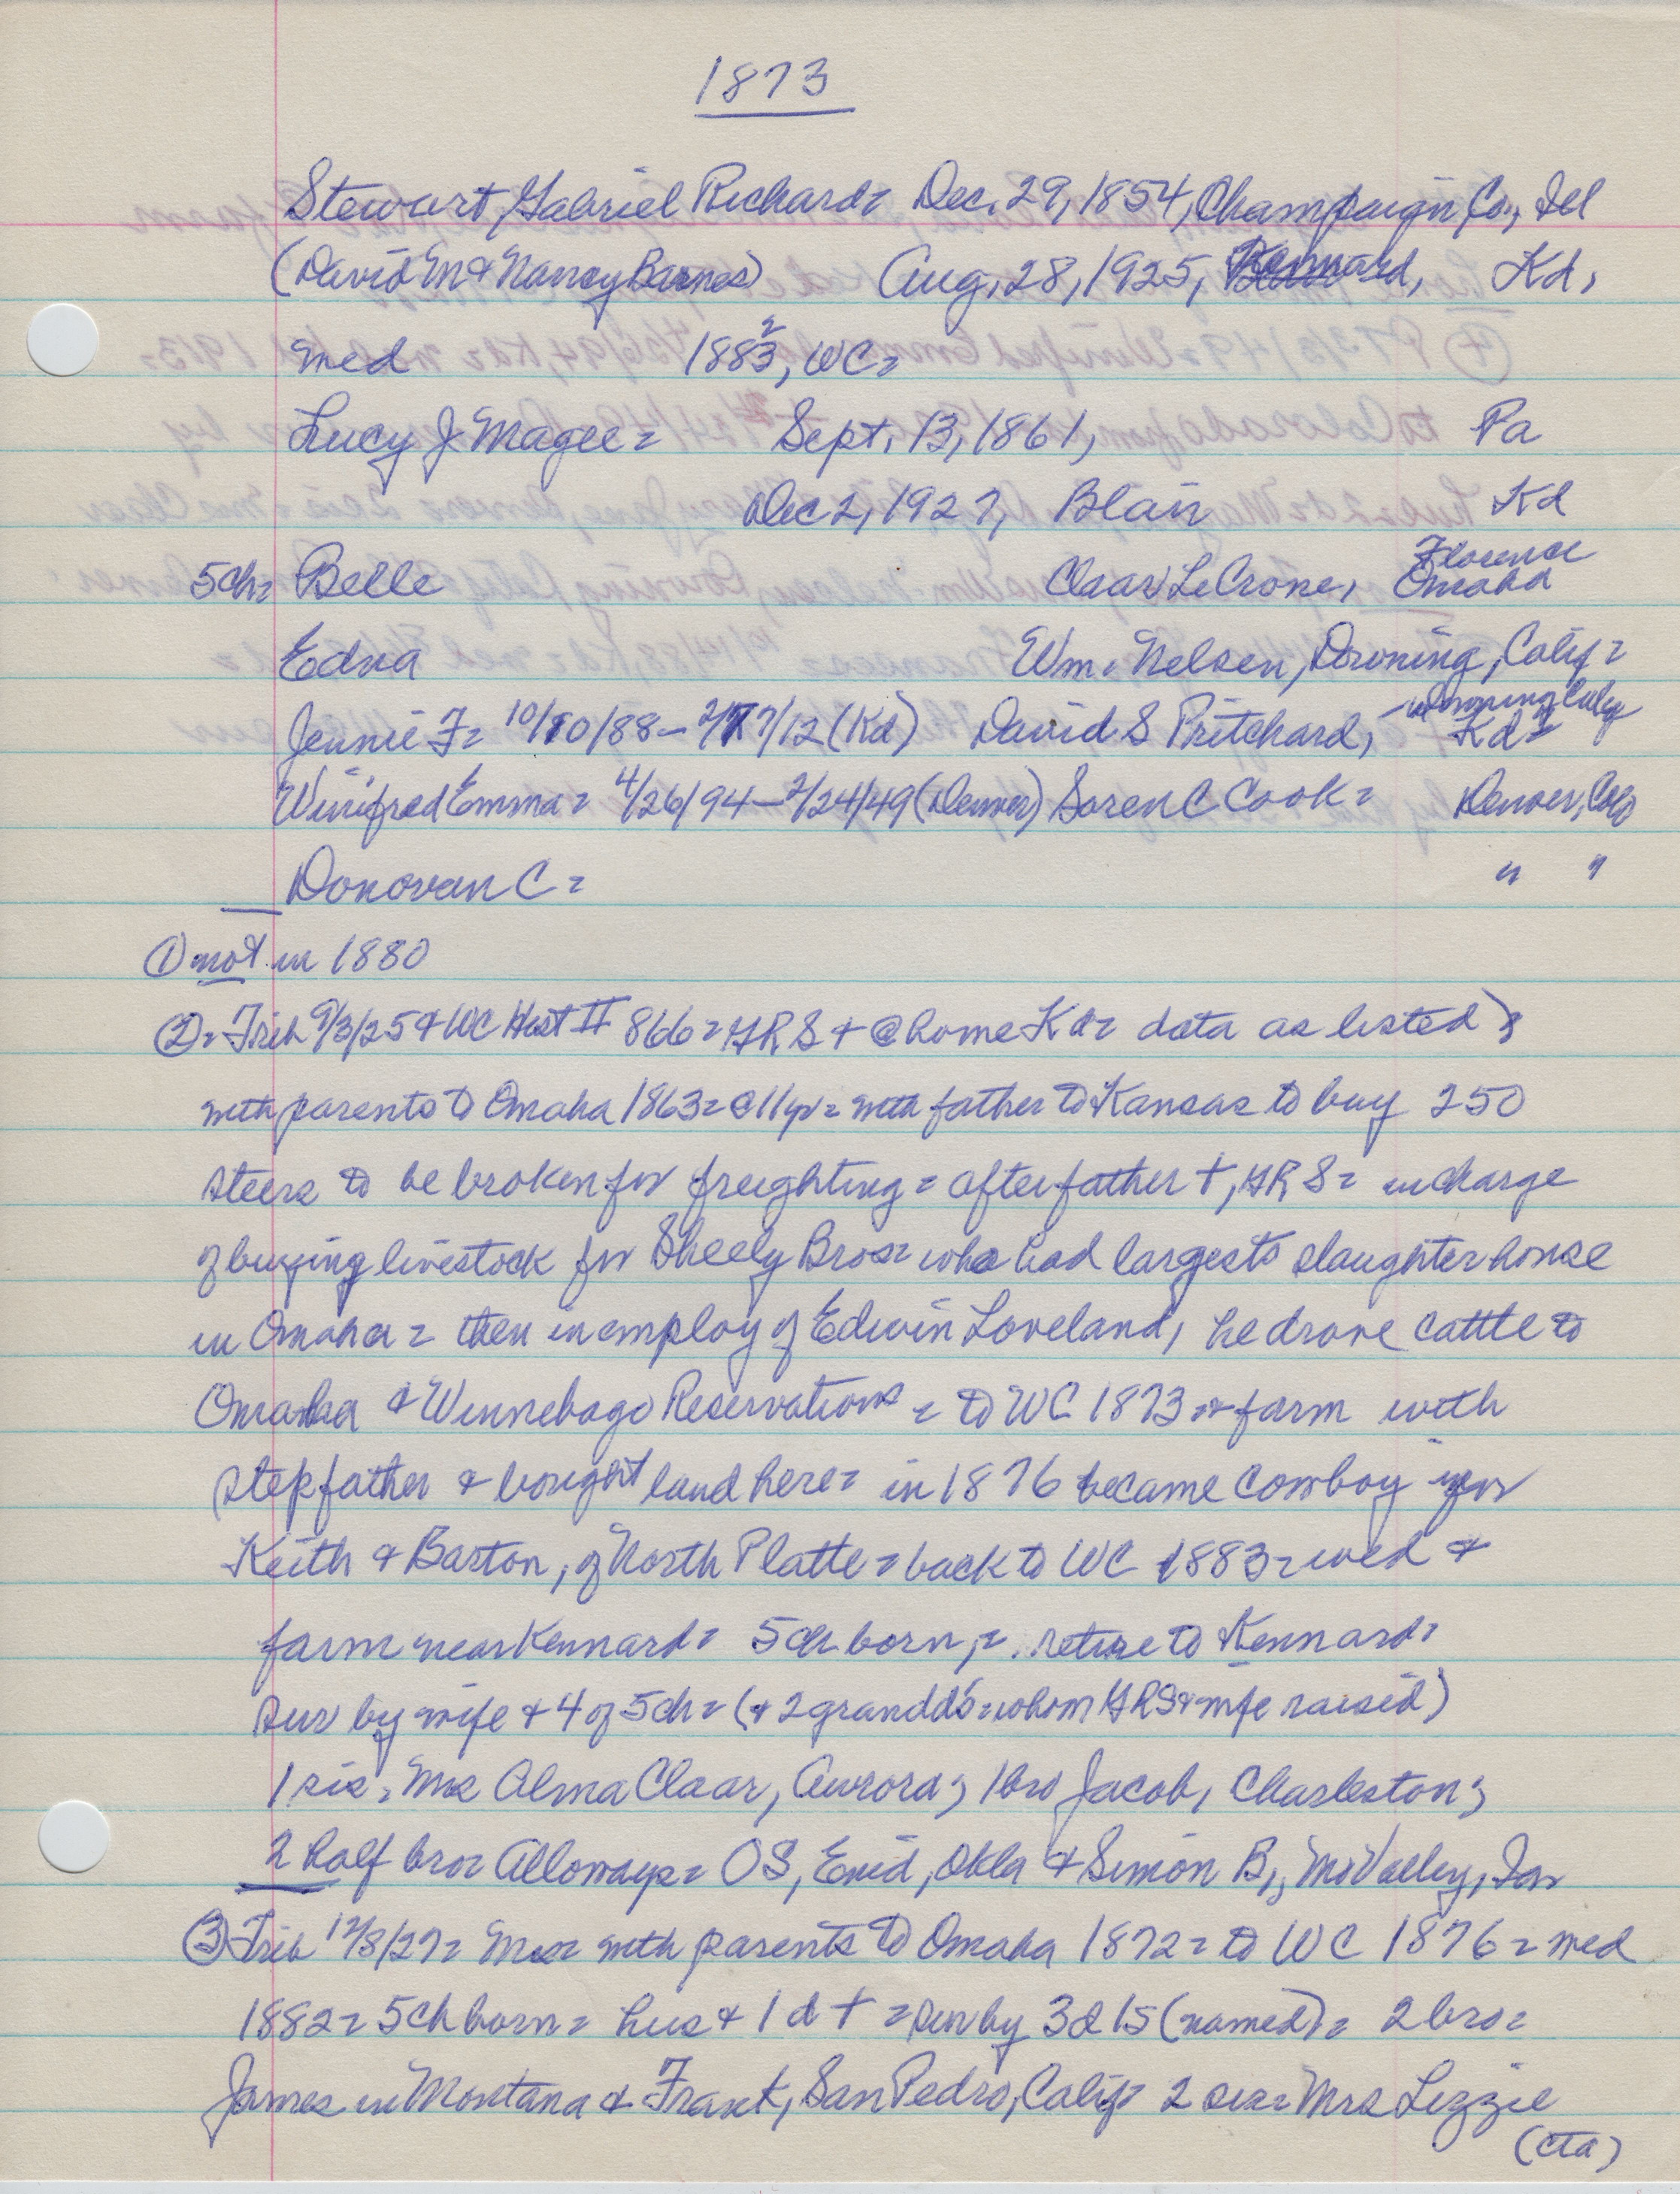 1873
Stewart, Gabriel Richard = Dec. 29, 1854, Champaign Co., Ill
(David M & Nancy Barnes) Aug. 28, 1925, Kd,
med 1883 2, WC =
Lucy J Magee = Sept. 13, 1861, Pa
Dec 2, 1927, Blair Kd
5ch = Belle Claar LeCrone, Florence Omaha
Edna Wm. Nelsen, Downing, Calif =
Jennie F = 10/10/88 - 2/17/12 (Kd) David S Pritchard, Kd = - Downing Calif
Winifred Emma = 4/26/94 - 2/24/49 (Denver) Soren C Cook = Denver, Colo
Donovan C = " "
① not in 1880
② = Trib 9/3/25 & WC Hist II 866 = GRS + @ home Kd = data as listed;
with parents to Omaha 1863 = @ 11yr = with father to Kansas to buy 250
steers to be broken for freighting = after father +, GRS = in charge
of buying livestock for Sheely Bros = who had largests slaughter house
in Omaha = then in employ of Edwin Loveland, he drove cattle to
Omaha & Winnebago Reservations = to WC 1873 = farm with
stepfather & bought land here = in 1876 became cowboy for
Keith & Barton, of North Platte = back to WC 1883 = wed &
farm near Kennard = 5ch born, = retire to Kennard =
sur by wife & 4 of 5ch = (& 2 grandd's = whom GRS & wife raised)
1 sis = Mrs Alma Claar, Aurora; 1 bro Jacob, Charleston;
2 half bro = Alloways = OS, Enid, Okla & Simon B., Mo Valley, Ia
③ Trib 12/8/27 = Mrs = with parents to Omaha 1872 = to WC 1876 = med
1882 = 5ch born = hus & 1 d + = sur by 3d 1S (named) = 2 bro =
James in Montana & Frank, San Pedro, Calif = 2 sis = Mrs Lizzie
(ctd)